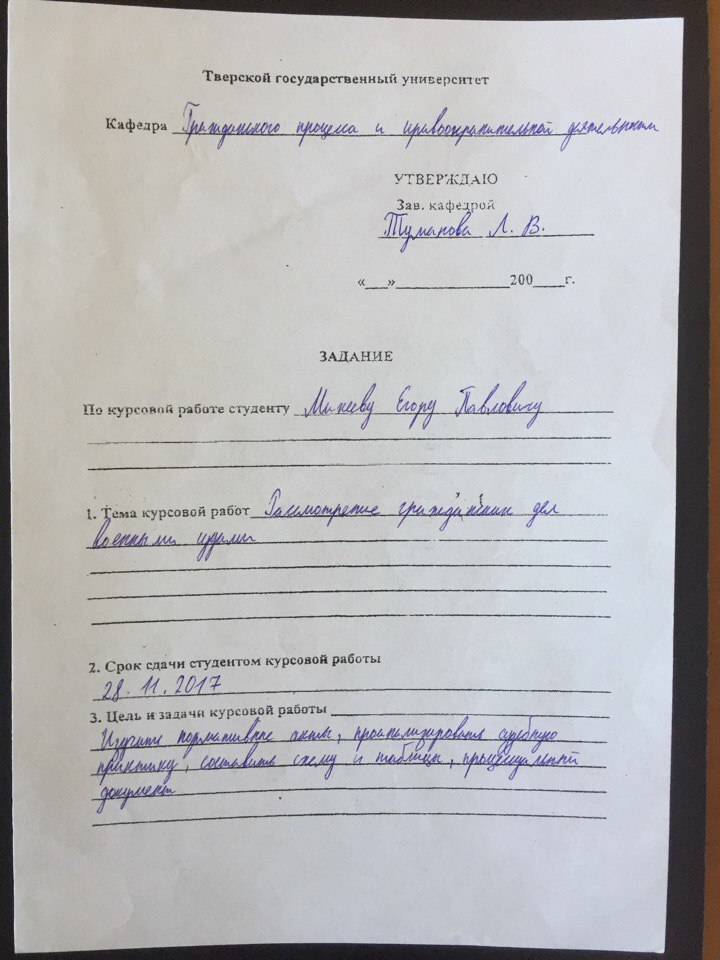 Тверской государственный университет
Кафедра Гражданского процесса и правоохранительной деятельности
УТВЕРЖДАЮ
Зав. кафедрой
Туманова Л. В.
«___»______________200____г.
ЗАДАНИЕ
По курсовой работе студенту Михееву Егору Павловичу
1. Тема курсовой работ Рассмотрение гражданских дел
военными судами
2. Срок сдачи студентом курсовой работы
28. 11. 2017
3. Цель и задачи курсовой работы
Изучить нормативные акты, проанализировать судебную
практику, составить схему и таблицы, процессуальный
документ